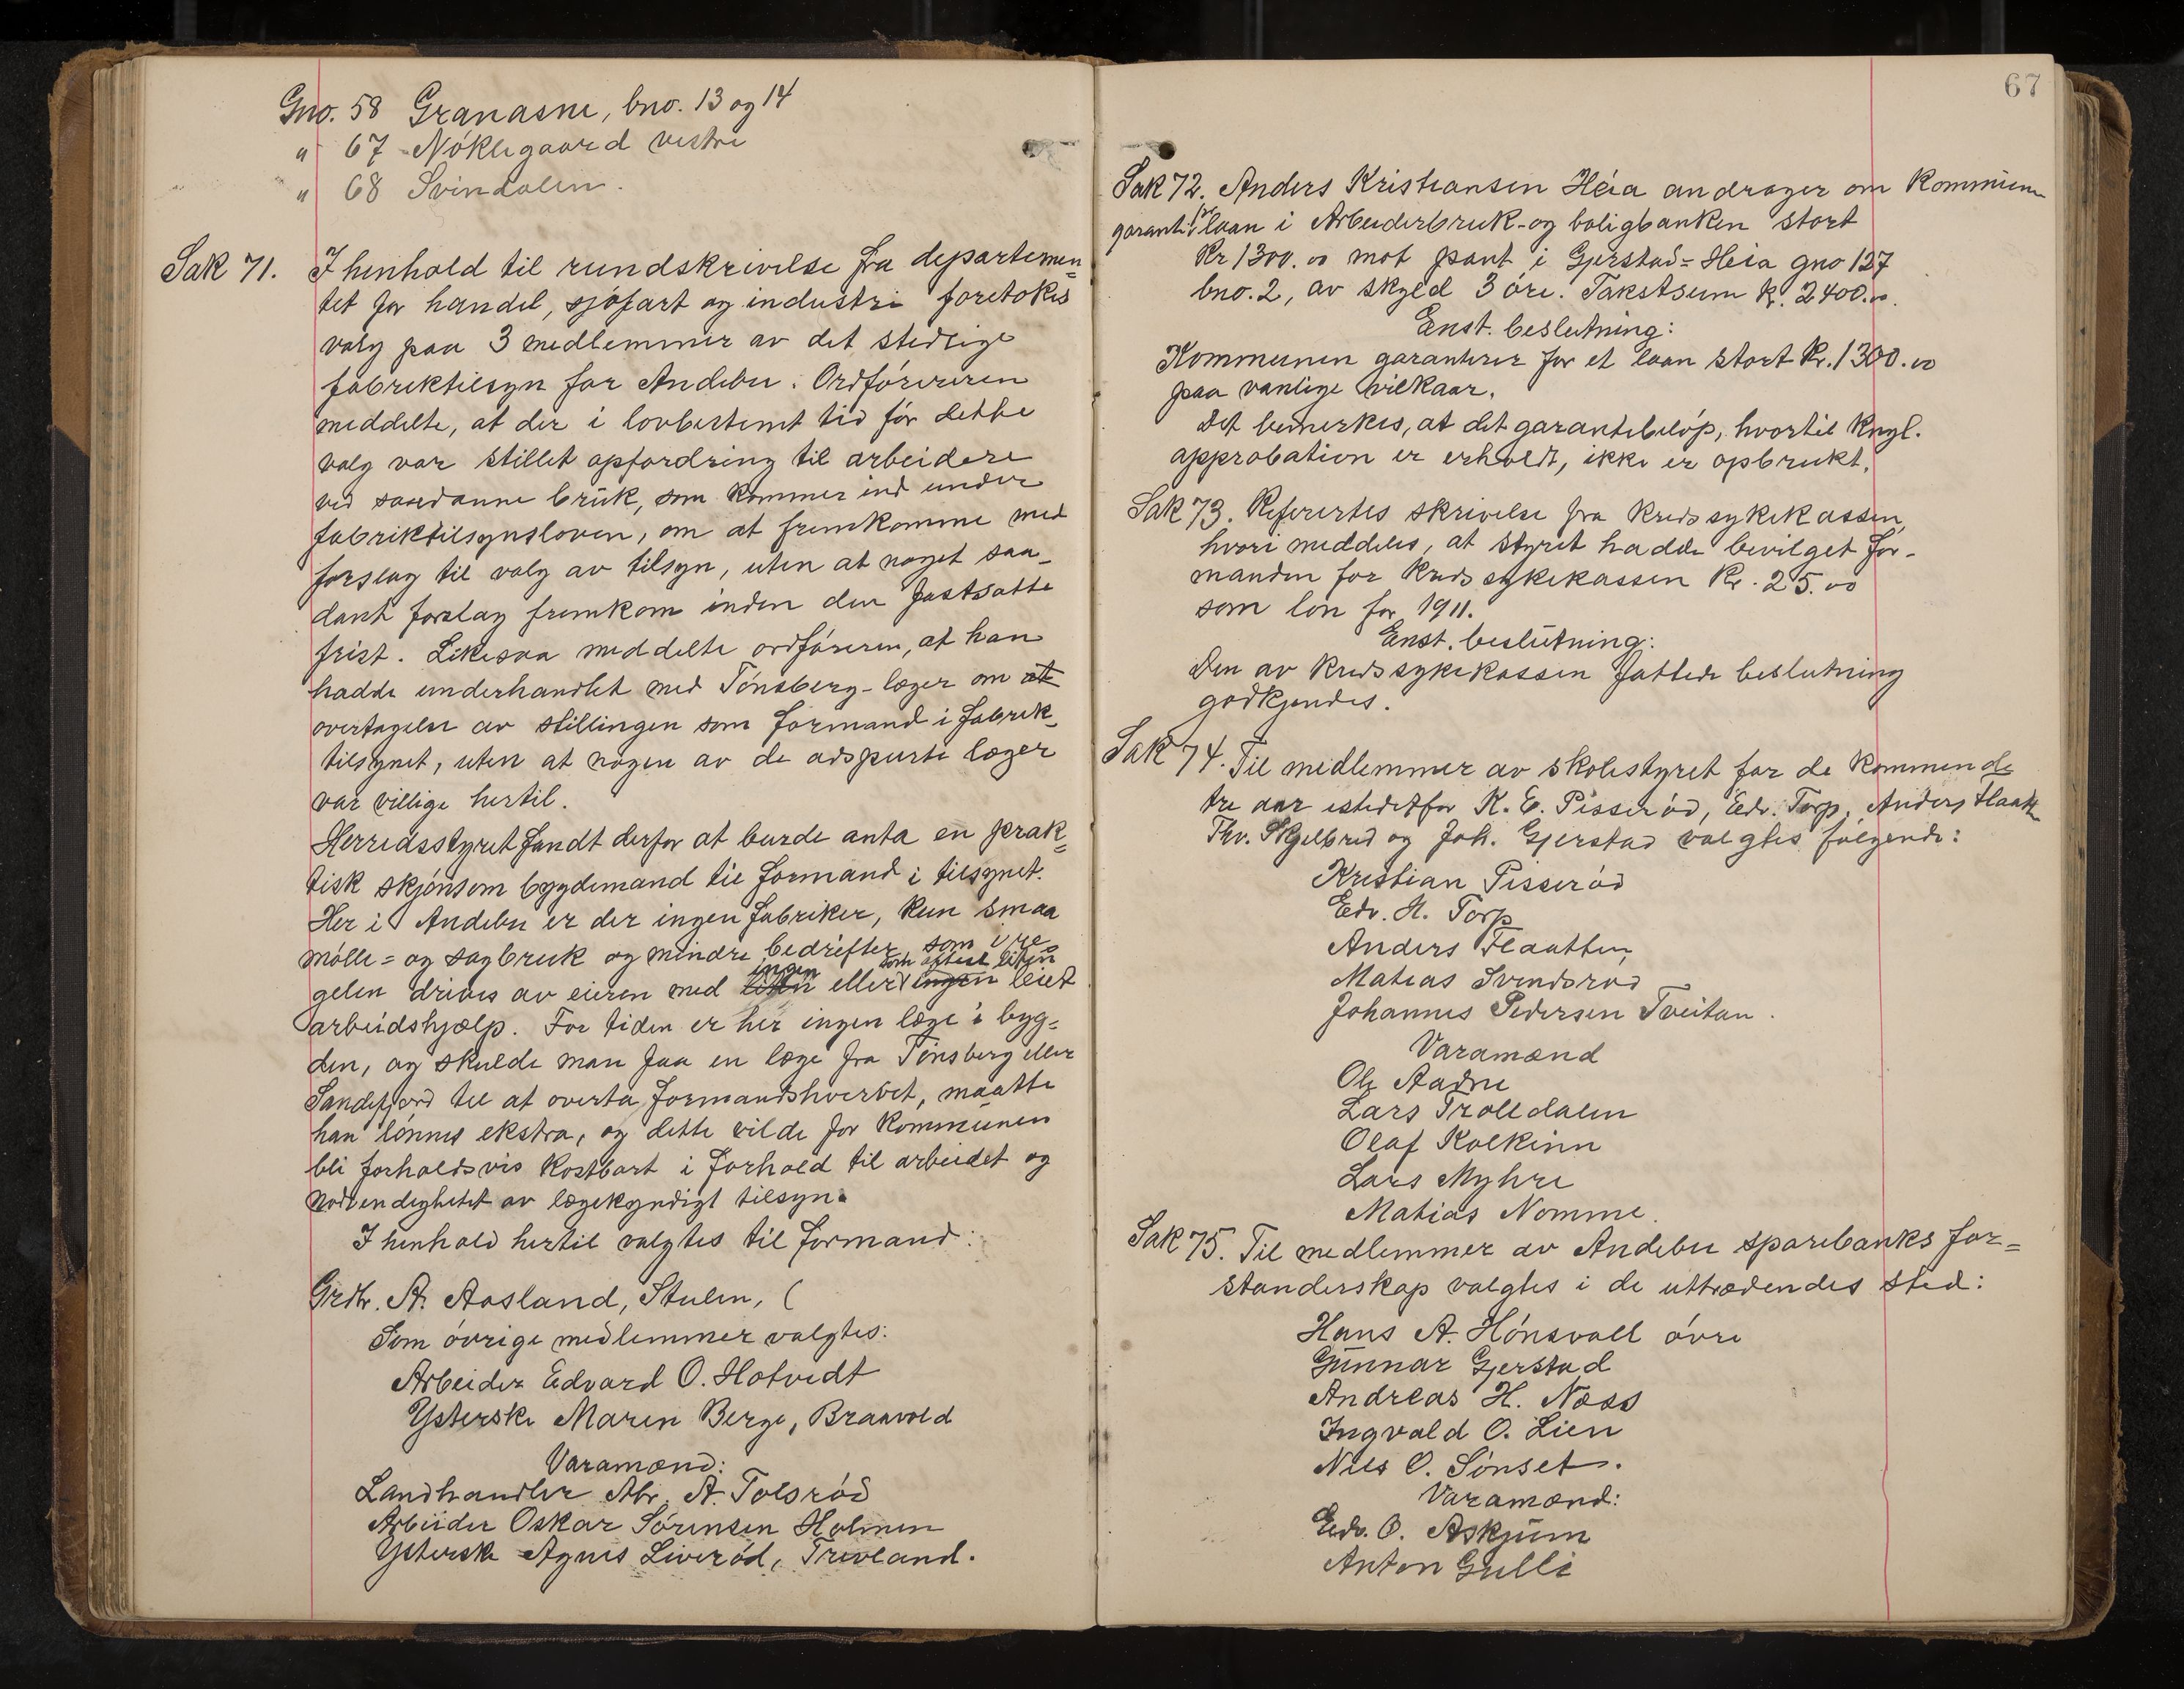 Gno. 58 Granasne, bno. 13 og 14
" 67 Nøklegaard vestre
" 68 Svindalen.
Sak 71. I henhold til rundskrivelse fra departemen=
tet for handel, sjøfart og industri foretokes
valg paa 3 medlemmer av det stedlige
fabriktilsyn for Andebu. Ordføreren
meddelte, at der i lovbestemt tid før dette
valg var stillet opfordring til arbeidere
ved saadanne bruk, som kommer ind under
fabriktilsynsloven, om at fremkomme med
forslag til valg av tilsyn, uten at noget saa-
dant forslag fremkom inden den fastsatte
frist. Likesaa meddelte ordføreren, at han
hadde underhandlet med Tønsberg-læger om at
overtagelse av stillingen som formand i fabrik-
tilsynet, uten at nogen av de adspurte læger
var villige hertil.
Herredsstyret fandt derfor at burde anta en prak=
tisk skjønsom bygdemand til formand i tilsynet.
Her i Andebu er der ingen fabriker, kun smaa
mølle= og sagbruk og mindre bedrifter, som i re-
ingen som oftest liten
gelen drives av eieren med liten eller ingen leiet
arbeidshjælp. For tiden er her ingen læge i byg=
den, og skulde man faa en læge fra Tønsberg eller
Sandefjord til at overta formandshvervet, maatte
han lønnes ekstra, og dette vilde for kommunen
bli forholdsvis kostbart i forhold til arbeidet og
nødvendigheten av lægekyndigt tilsyn.
I henhold hertil valgtes til formand:
Grdbr. A. Aasland, Stulen, (
Som øvrige medlemmer valgtes:
Arbeider Edvard O. Hotvedt
Ysterske Maren Berge, Braavold
Varamænd:
Landhandler Abr. A. Tolsrød
Arbeider Oskar Sørensen Holmen
Ysterske Agnes Liverød, Trevland.
67
Sak 72. Anders Kristiansen Heia andrager om kommune
garanti for laan i Arbeiderbruk- og boligbanken stort
Kr 1300.00 mot pant i Gjerstad=Heia gno 127
bno. 2, av skyld 3 øre. Takstsum kr. 2400.00.
Enst. beslutning:
Kommunen garanterer for et laan stort Kr. 1300.00
paa vanlige vilkaar.
Det bemerkes, at det garantibeløp, hvortil kngl.
approbation er erholdt, ikke er opbrukt.
Sak 73. Refertes skrivelse fra kredssykekassen,
hvori meddeles, at styret hadde bevilget for-
manden for kredssykekassen Kr. 25.00
som løn for 1911.
Enst. beslutning:
Den av kredssykekassen fattede beslutning
godkjendes.
Sak 74. Til medlemmer av skolestyret for de kommende
tre aar istedetfor K. E. Pisserød, Edv. Torp, Anders Flaatten
Thv. Skjelbred og Joh. Gjerstad valgtes følgende:
Kristian Pisserød
Edv. H. Torp
Anders Flaatten,
Matias Svendsrød
Johannes Pedersen Tveitan.
Varamænd
Ole Aadne
Lars Trolldalen
Olaf Kolkinn
Lars Myhre
Matias Nomme.
Sak 75. Til medlemmer av Andebu sparebanks for=
standerskap valgtes i de uttrædendes sted:
Hans A. Hønsvall øvre
Gunnar Gjerstad
Andreas H. Næss
Ingvald O. Lien
Nils O. Sønset.
Varamænd:
Edv. O. Askjum
Anton Gulli